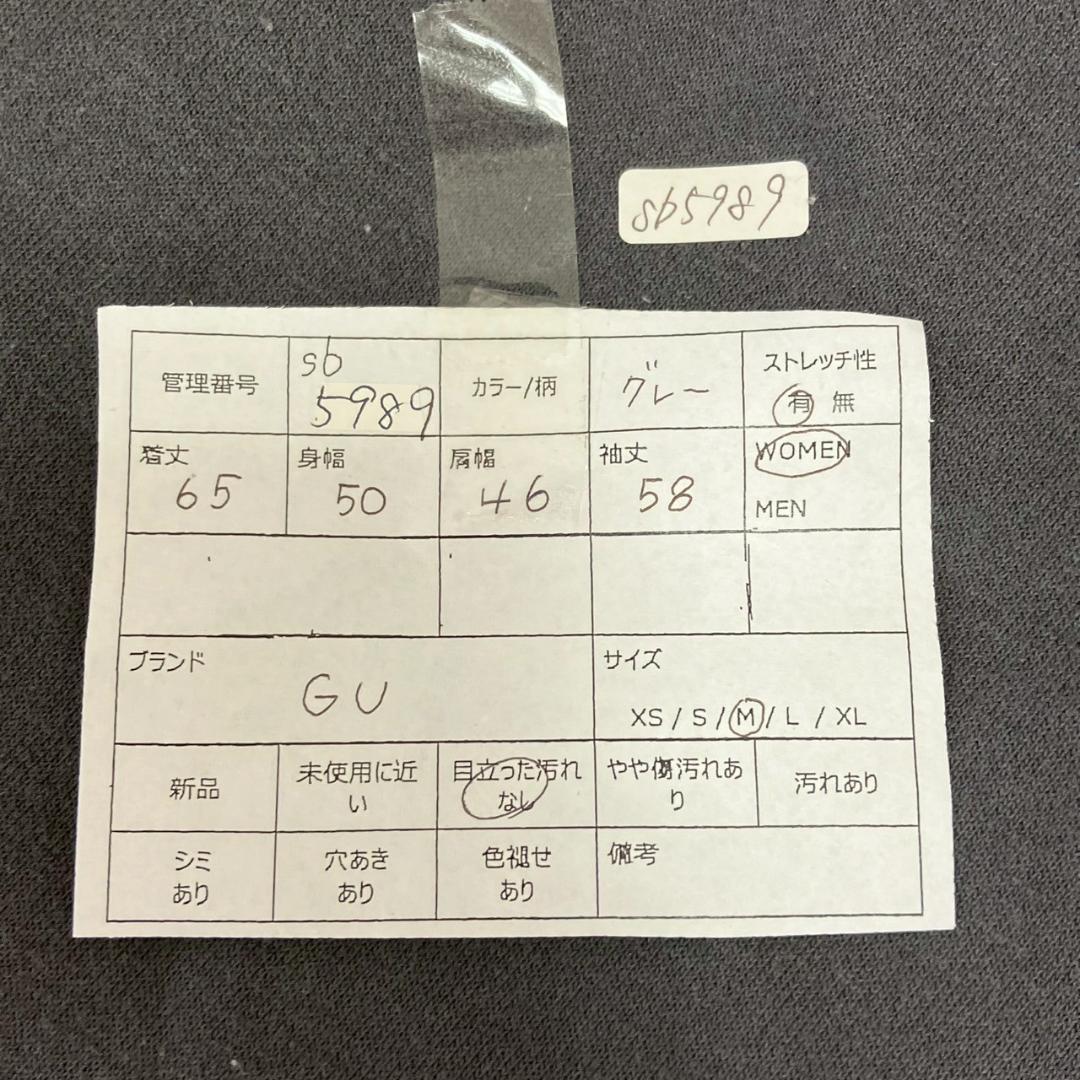 sb5989
管理番号
sb
5989
カラー/柄
グレー
ストレッチ性
有 無
着丈
65
身幅
50
肩幅
46
袖丈
58
WOMEN
MEN
ブランド
GU
サイズ
XS / S / M / L / XL
新品
未使用に近
い
目立った汚れ
なし
やや傷汚れあ
り
汚れあり
シミ
あり
穴あき
あり
色褪せ
あり
備考